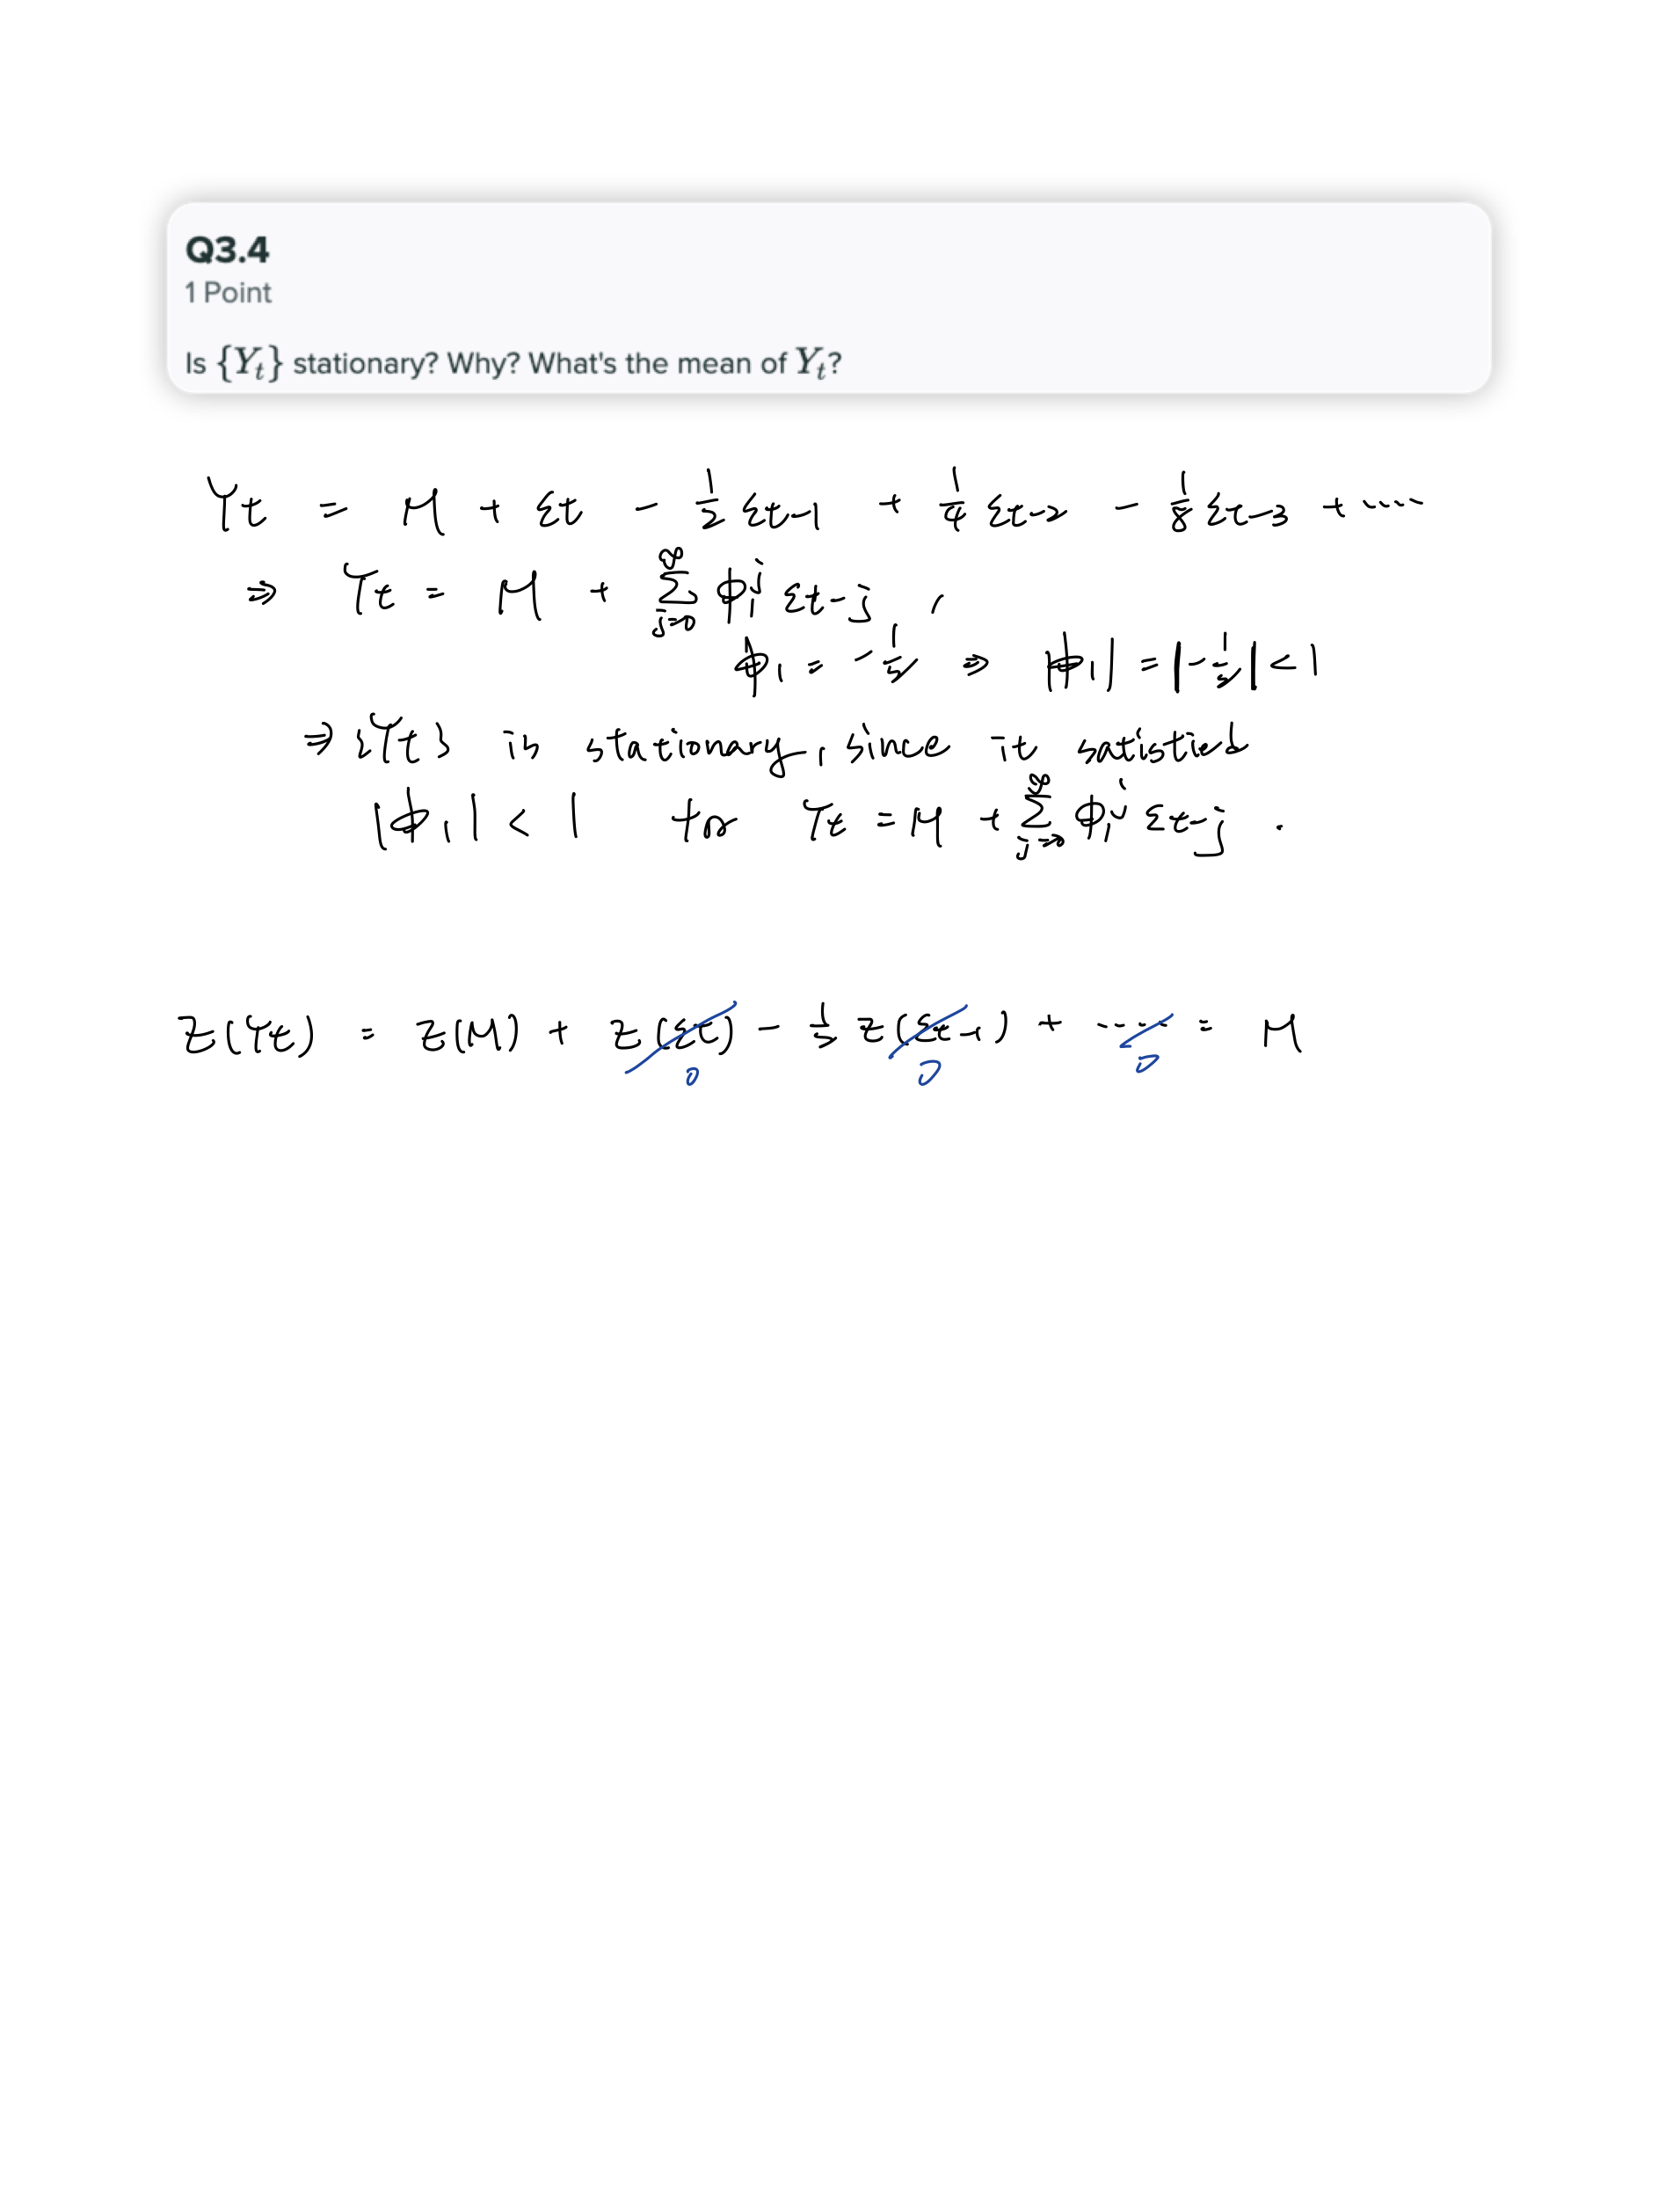 Q3.4
1 Point
Is {Yₜ} stationary? Why? What's the mean of Yₜ?
Yt = M + Σt - 1/2 Σt-1 + 1/4 Σt-2 - 1/8 Σt-3 + ....
⇒ Yt = M + ∑_{j=0}^{∞} ϕ₁ʲ Σt-j ,
ϕ₁ = -1/2 ⇒ |ϕ₁| = |-1/2| < 1
⇒ {Yt} is stationary, since it satisfied
|ϕ₁| < 1 for Yt = M + ∑_{j=0}^{∞} ϕ₁ʲ Σt-j .
E(Yt) = E(M) + E(Σt) - 1/2 E(Σt-1) + .... = M
0 0 0